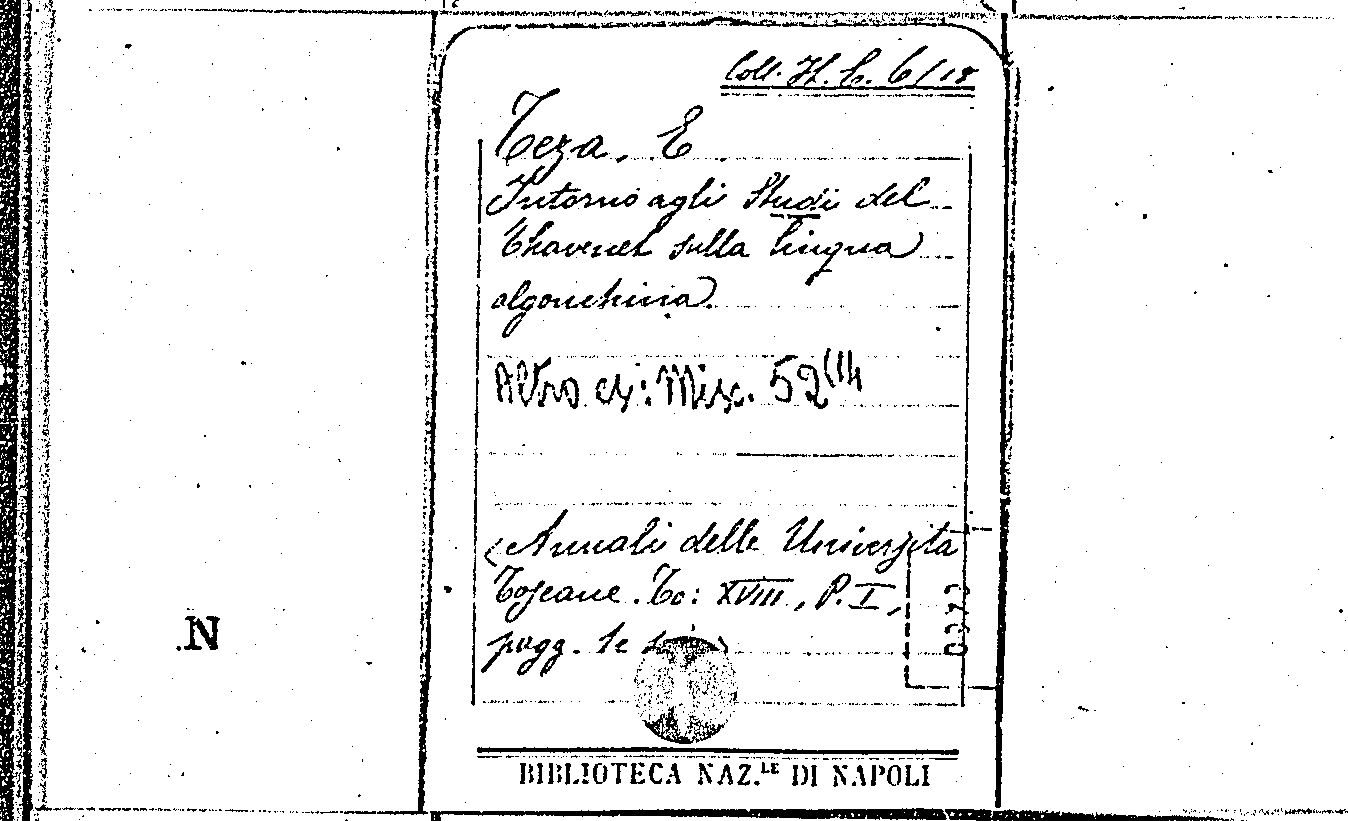 Coll. H. C. 6/18
Teza, E
Intorno agli Studi del
Chavenel sulla lingua
algonchina.
Altro es: Misc. 52(14
(Annali delle Università
Toscane. To: XVIII, P. I,
pagg. 1e
0373
N
BIBLIOTECA NAZ.LE DI NAPOLI